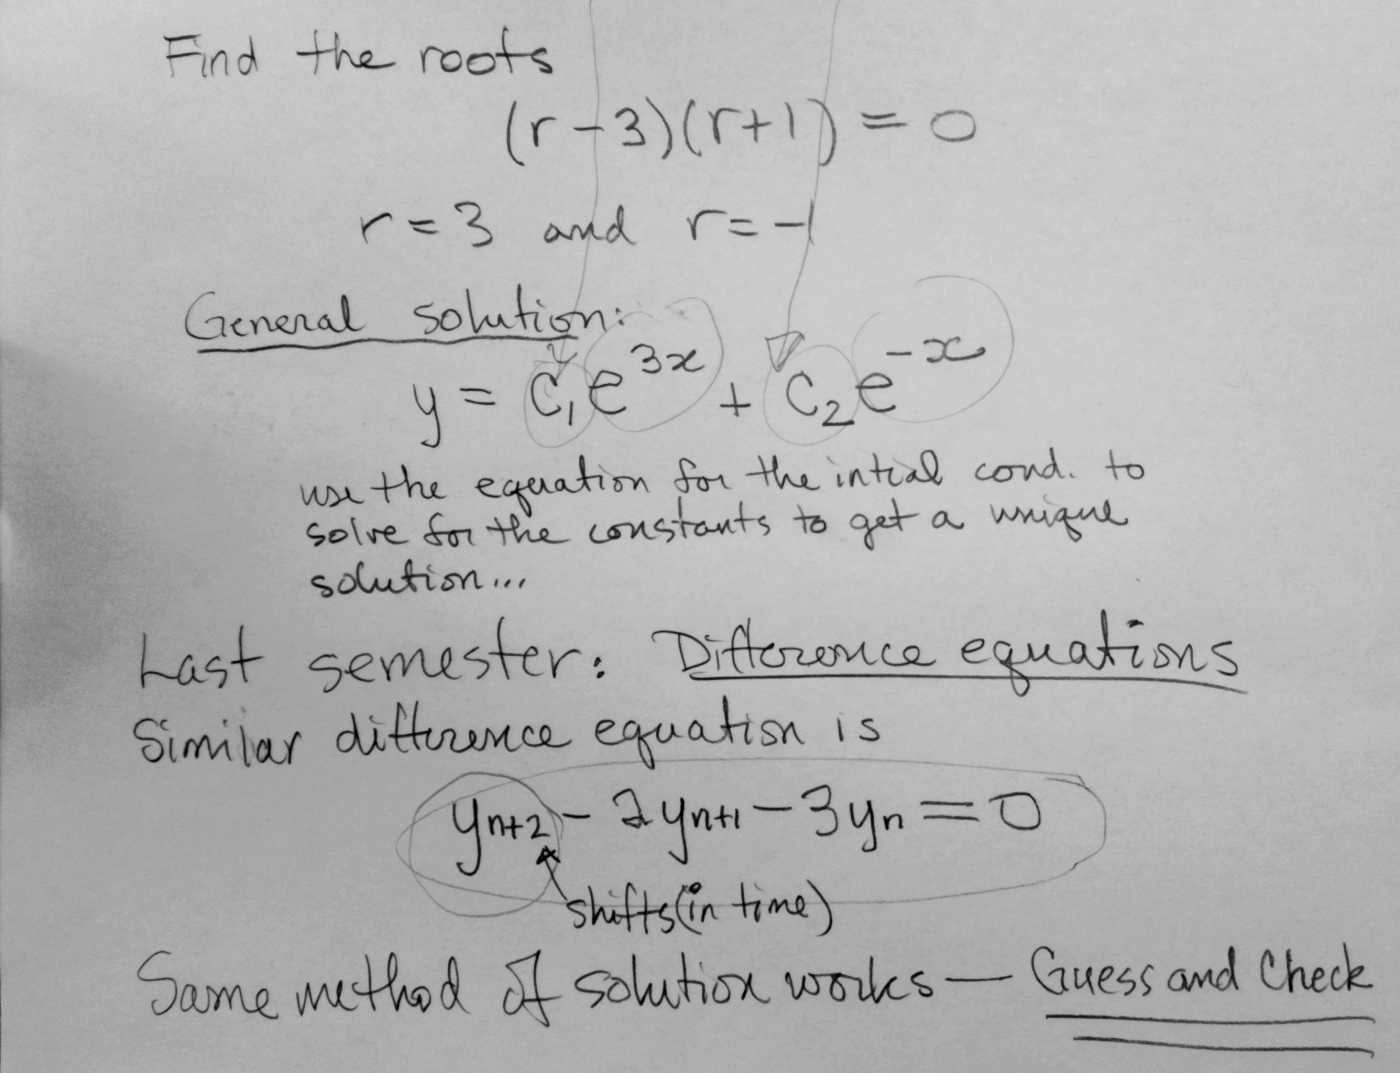 Find the roots
(r-3)(r+1) = 0
r = 3 and r = -1
General solution:
y = c₁e³ˣ + c₂e⁻ˣ
use the equation for the intial cond. to
solve for the constants to get a unique
solution...
Last semester: Difference equations
Similar difference equation is
yₙ₊₂ - 2yₙ₊₁ - 3yₙ = 0
shifts (in time)
Same method of solution works — Guess and Check